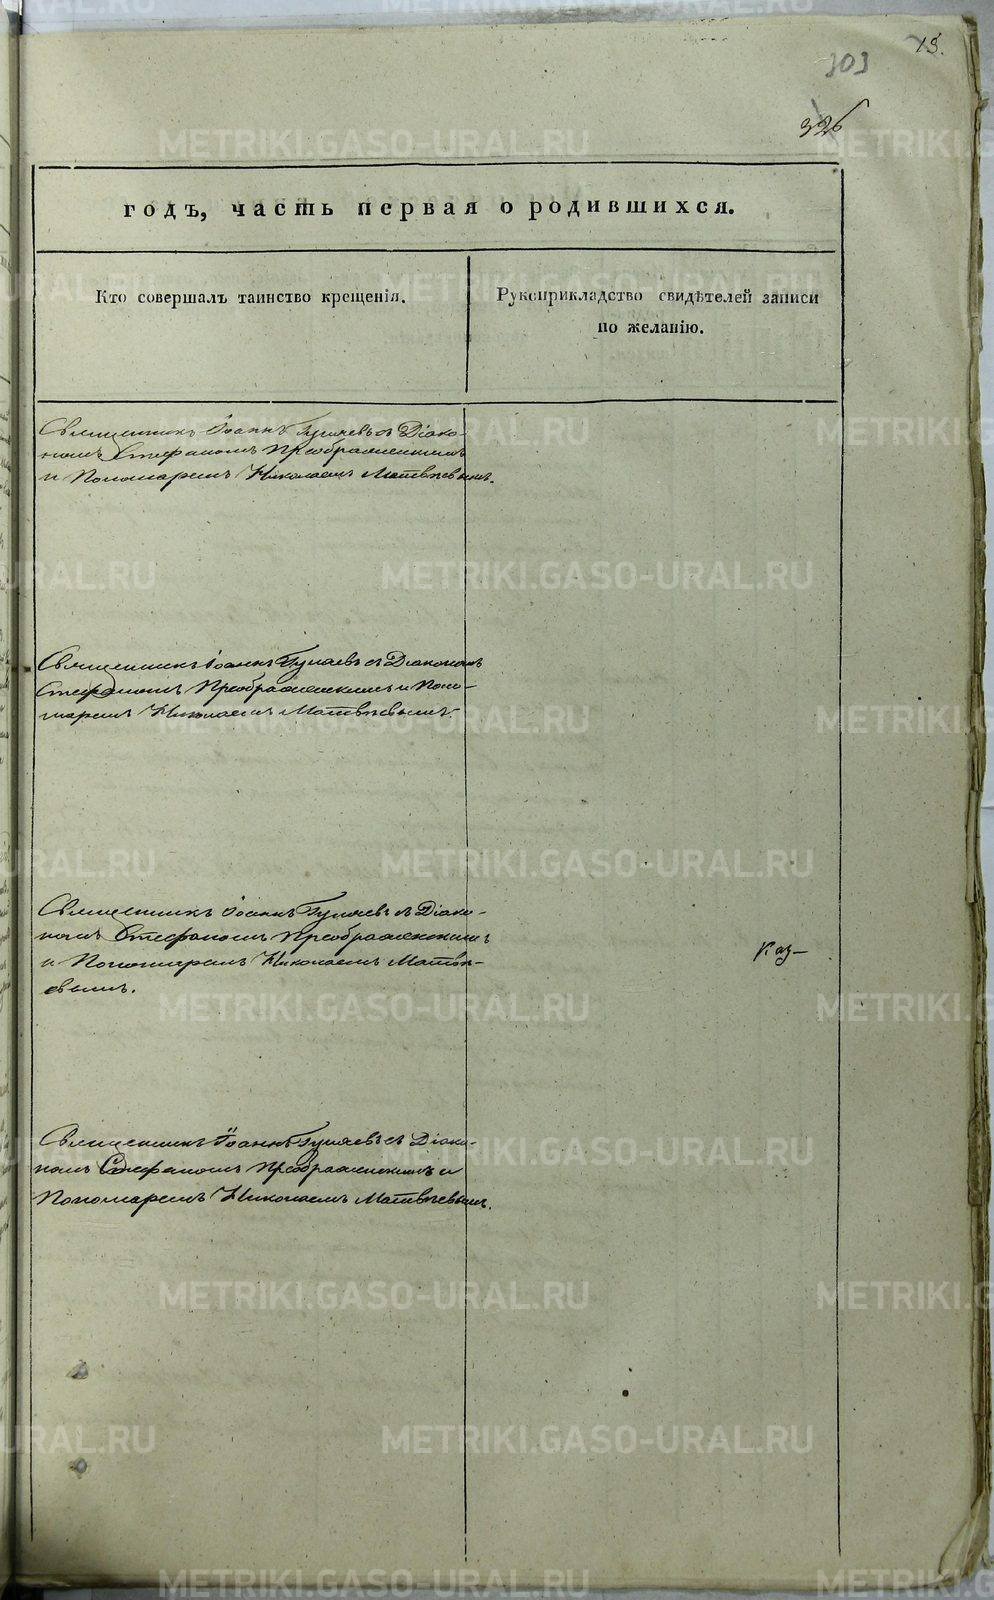 13.
303
326
годъ, часть первая о родившихся.
Кто совершалъ таинство крещенія.
Рукоприкладство свидѣтелей записи
по желанію.
Священникъ Іоаннъ Гуляевъ съ Діако-
номъ Стефаномъ Преображенскимъ
и Пономаремъ Николаемъ Матвѣевымъ.
Священникъ Іоаннъ Гуляевъ съ Діакономъ
Стефаномъ Преображенскимъ и Поно-
маремъ Николаемъ Матвѣевымъ.
Священникъ Іоаннъ Гуляевъ съ Діако-
номъ Стефаномъ Преображенскимъ
и Пономаремъ Николаемъ Матвѣ-
евымъ.
Каз-
Священникъ Іоаннъ Гуляевъ съ Діако-
номъ Стефаномъ Преображенскимъ и
Пономаремъ Николаемъ Матвѣевымъ.
METRIKI.GASO-URAL.RU